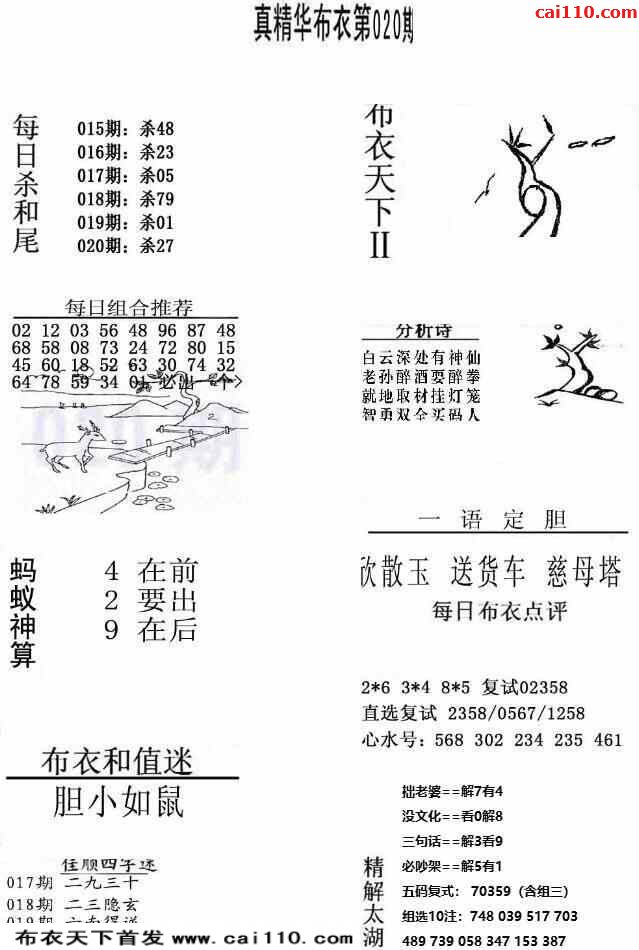 cai110.com
真精华布衣第020期
每日杀和尾
015期：杀48
016期：杀23
017期：杀05
018期：杀79
019期：杀01
020期：杀27
布衣天下II
每日组合推荐
02 12 03 56 48 96 87 48
68 58 08 73 24 72 80 15
45 60 18 52 63 30 74 32
64 78 59 34 01 必出一个>
分析诗
白云深处有神仙
老孙醉酒耍醉拳
就地取材挂灯笼
智勇双全买码人
一语定胆
欣散玉 送货车 慈母塔
蚂蚁神算
4 在前
2 要出
9 在后
每日布衣点评
2*6 3*4 8*5 复试02358
直选复试 2358/0567/1258
心水号：568 302 234 235 461
布衣和值迷
胆小如鼠
佳顺四字迷
017期 二九三十
018期 二三隐玄
精解太湖
拙老婆==解7有4
没文化==看0解8
三句话==解3看9
必吵架==解5有1
五码复式： 70359（含组三）
组选10注：748 039 517 703
489 739 058 347 153 387
布衣天下首发 www.cai110.com